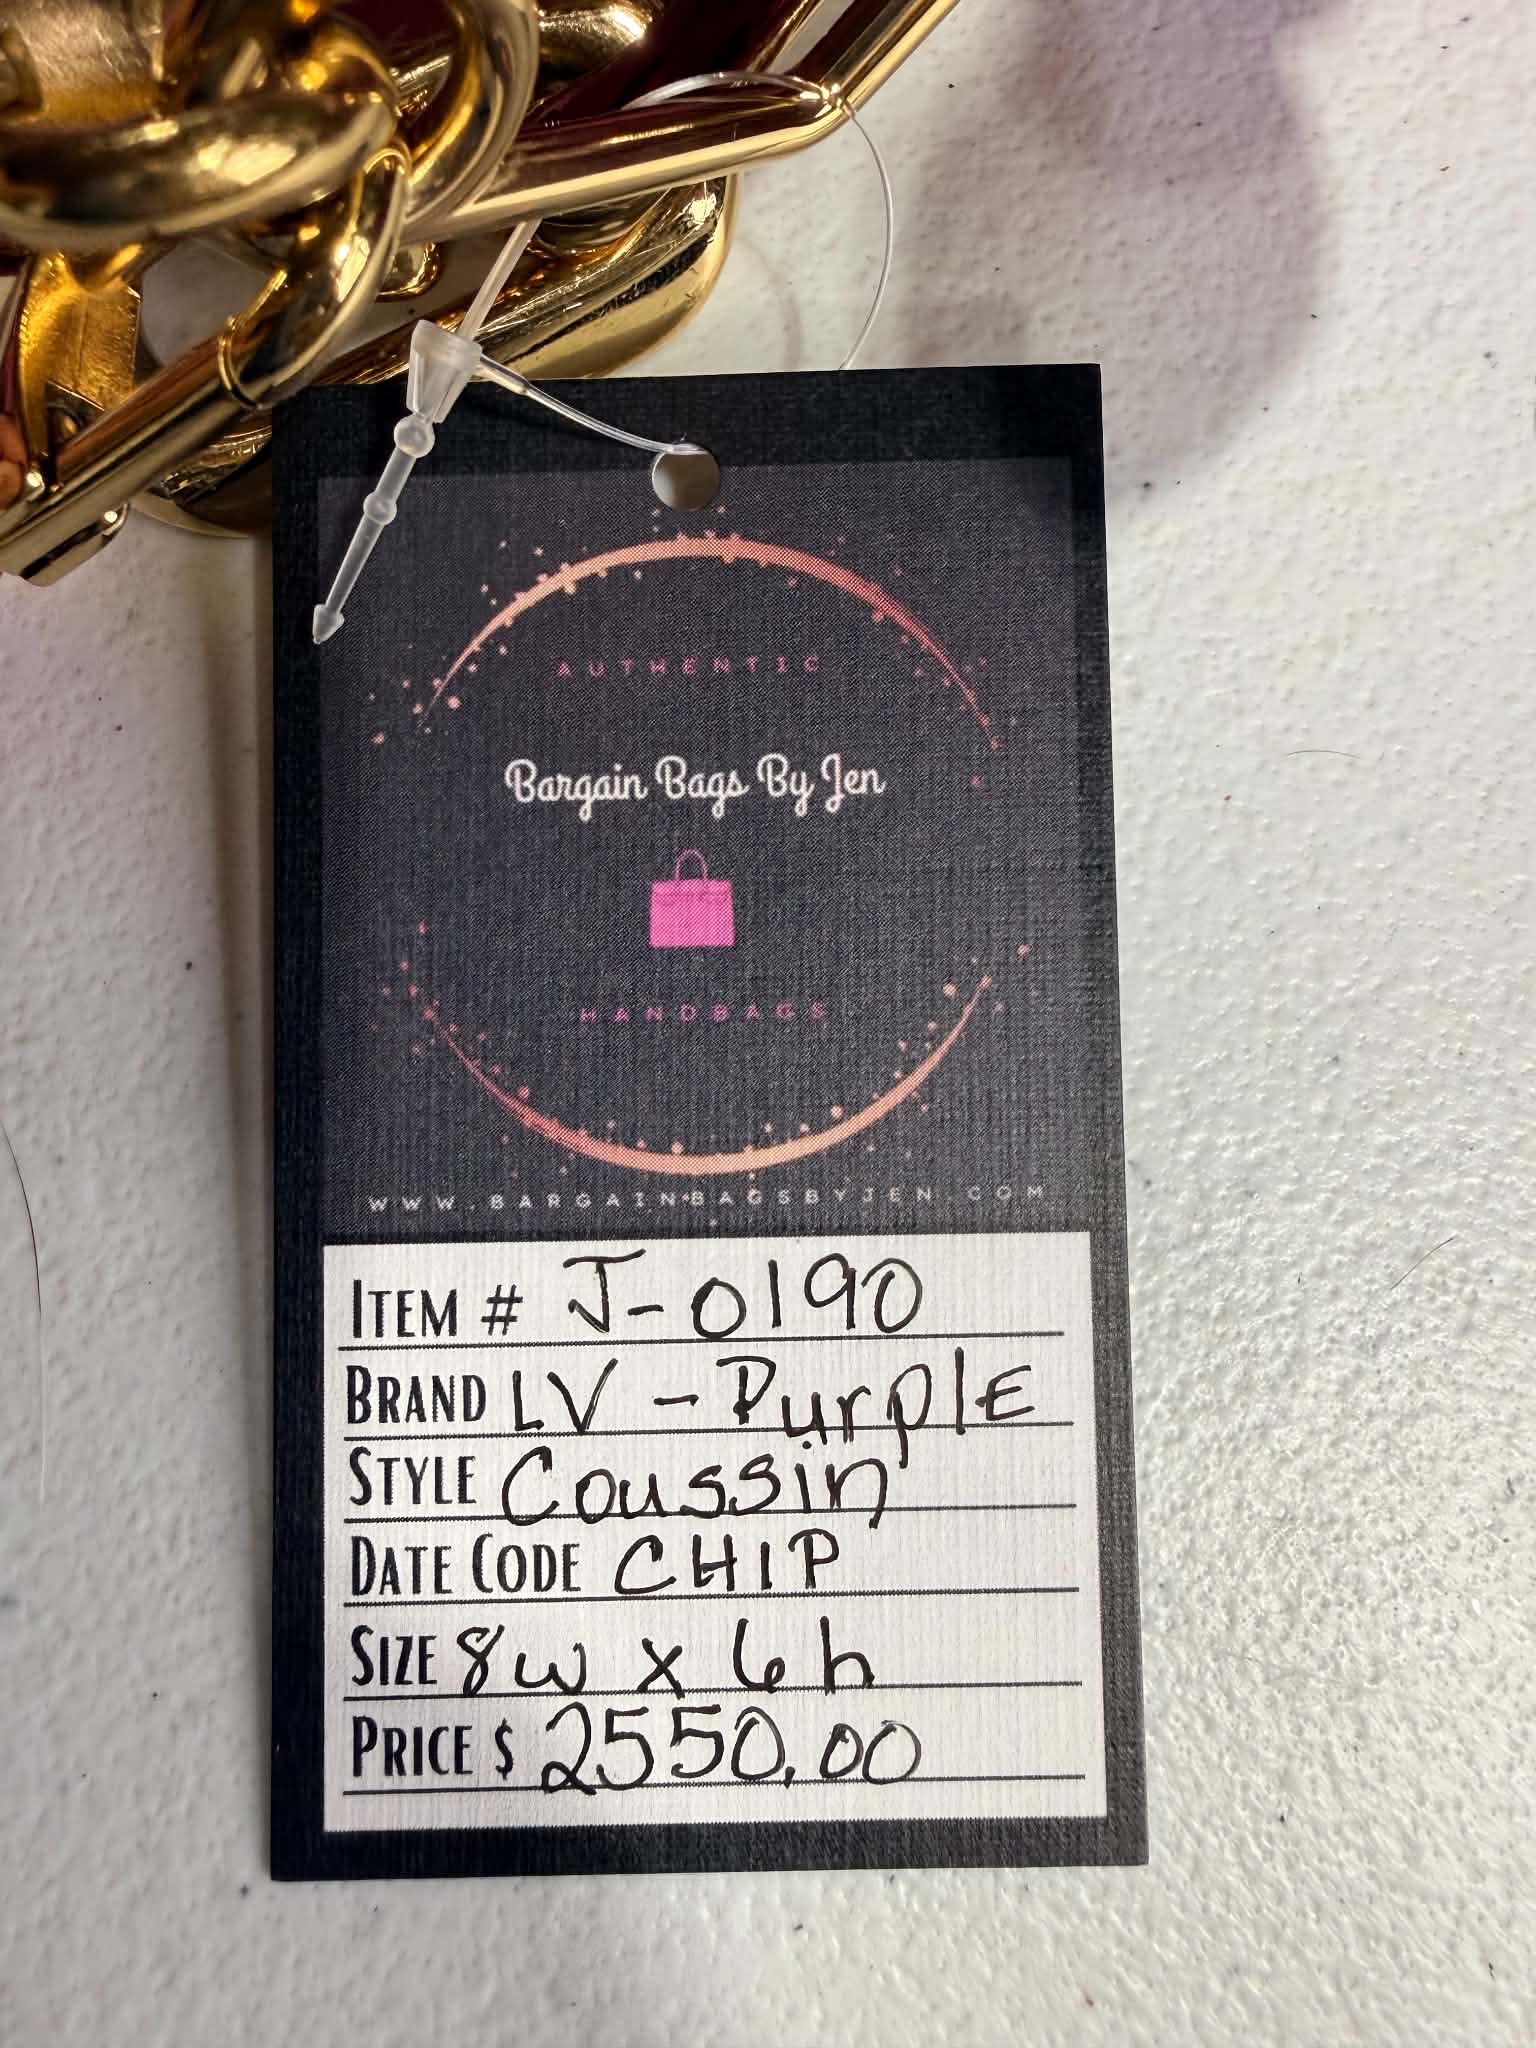 AUTHENTIC
Bargain Bags By Jen
HANDBAGS
WWW.BARGAINBAGSBYJEN.COM
ITEM # J-0190
BRAND LV - PurplE
STYLE Coussin
DATE CODE CHIP
SIZE 8w x 6h
PRICE $ 2550.00